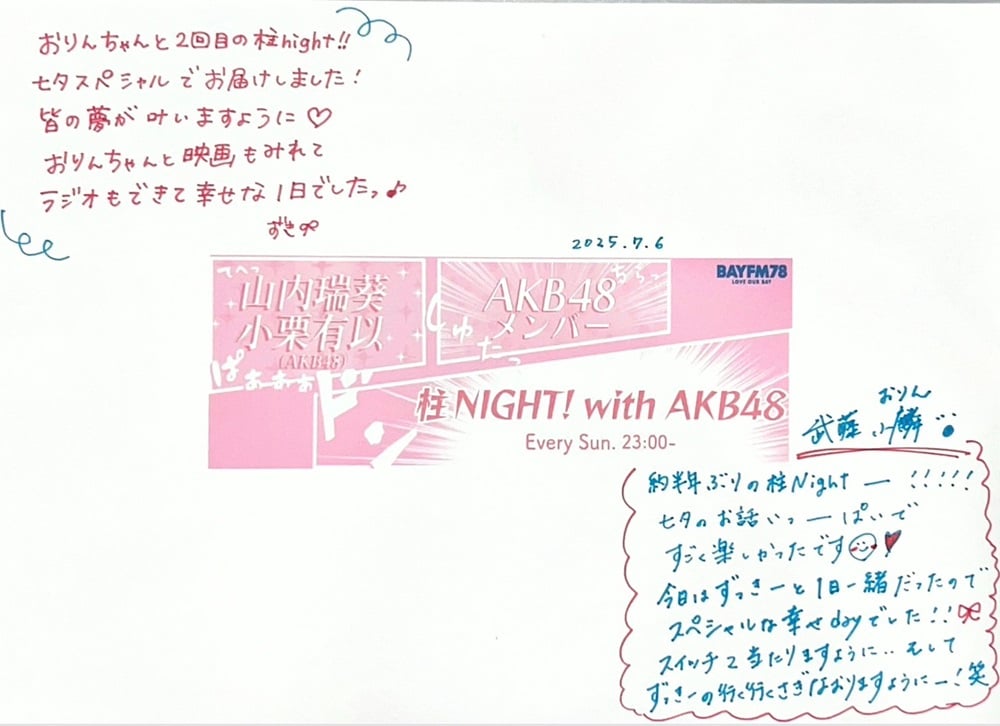 おりんちゃんと2回目の柱night!!
七夕スペシャルでお届けしました!
皆の夢が叶いますように♡
おりんちゃんと映画もみれて
ラジオもできて幸せな1日でしたっ♪
ずき
2025.7.6
てへっ
山内瑞葵
小栗有以
(AKB48)
ぱぁぁぁぁ
ドドン
AKB48
メンバー
ちらっ
しゅたっ
BAYFM78
LOVE OUR BAY
柱NIGHT! with AKB48
Every Sun. 23:00-
おりん
武藤小麟
約半年ぶりの柱Nightー!!!!!
七夕のお話いっーぱいで
すごく楽しかったです
今日はずっきーと1日一緒だったので
スペシャルな幸せdayでした!!
スイッチ2当たりますように..そして
ずっきーの行く行くさぎなおりますようにー!笑